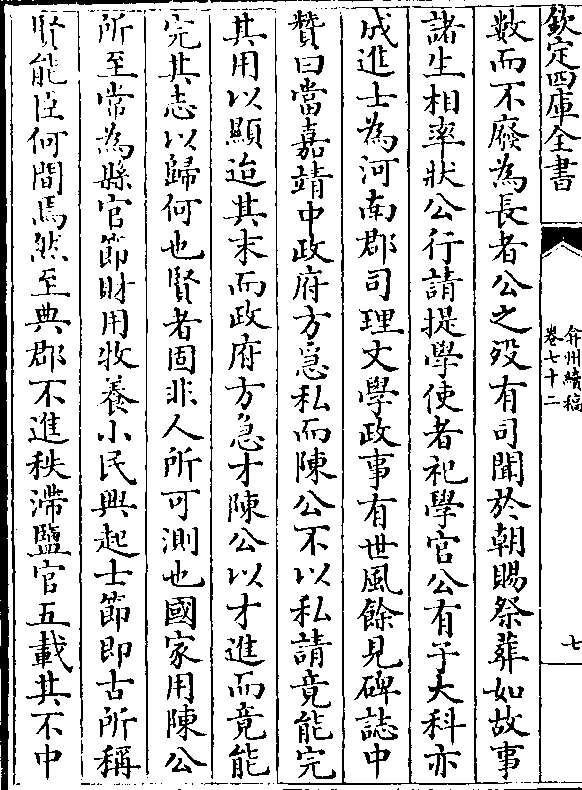 欽定四庫全書
弇州續稿
卷七十二
七
數而不廢為長者公之歿有司聞於朝賜祭葬如故事
諸生相率狀公行請提學使者祀學官公有子大科亦
成進士為河南郡司理文學政事有世風餘見碑誌中
贊曰當嘉靖中政府方急私而陳公不以私請竟能完
其用以顯迨其末而政府方急才陳公以才進而竟能
完其志以歸何也賢者固非人所可測也國家用陳公
所至常為縣官節財用牧養小民興起士節即古所稱
賢能臣何間焉然至典郡不進秩滯鹽官五載其不中